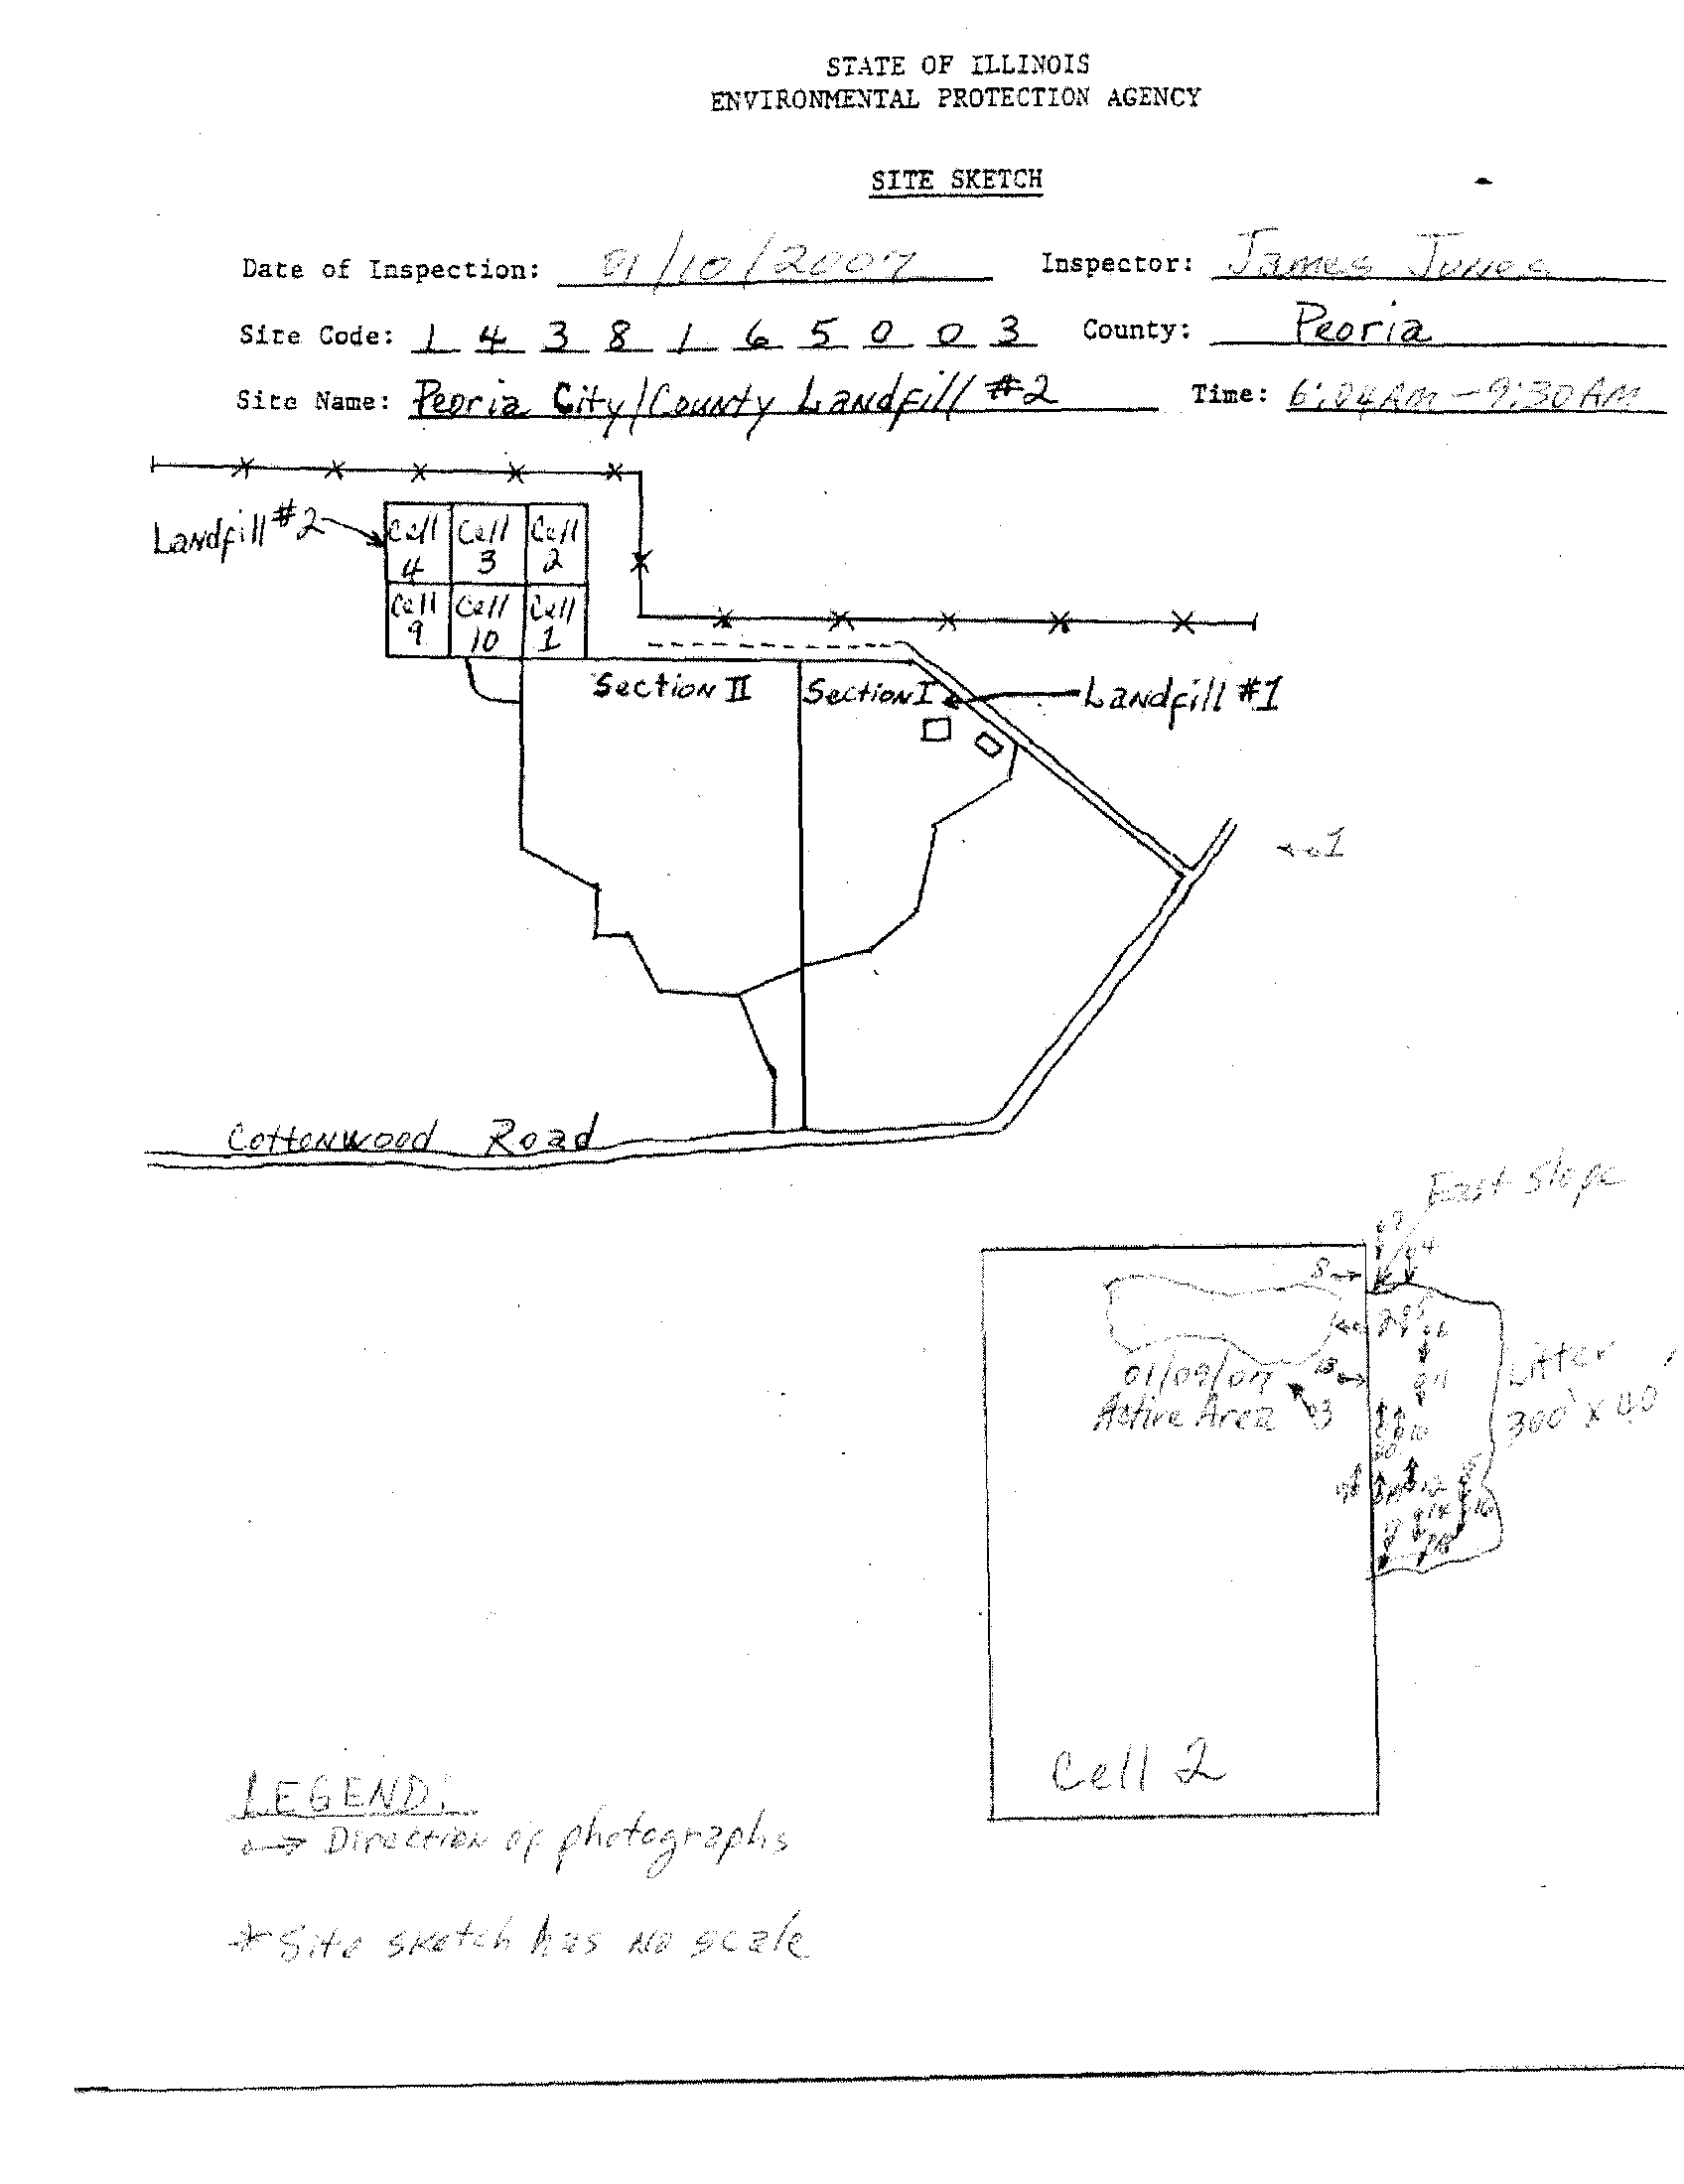 STATE OF ILLINOIS
ENVIRONMENTAL PROTECTION AGENCY
SITE SKETCH
Date of Inspection: 01/10/2007 Inspector: James Jones
Site Code: 1 4 3 8 1 6 5 0 0 3 County: Peoria
Site Name: Peoria City/County Landfill #2 Time: 6:04AM-9:30AM
Landfill #2
Cell 4
Cell 3
Cell 2
Cell 9
Cell 10
Cell 1
Section II
Section I
Landfill #1
1
Cottonwood Road
East Slope
4
8
2
6
01/09/07
Active Area
3
11
10
12
14
16
Litter
300' x 40'
Cell 2
LEGEND:
Direction of photographs
*Site sketch has no scale